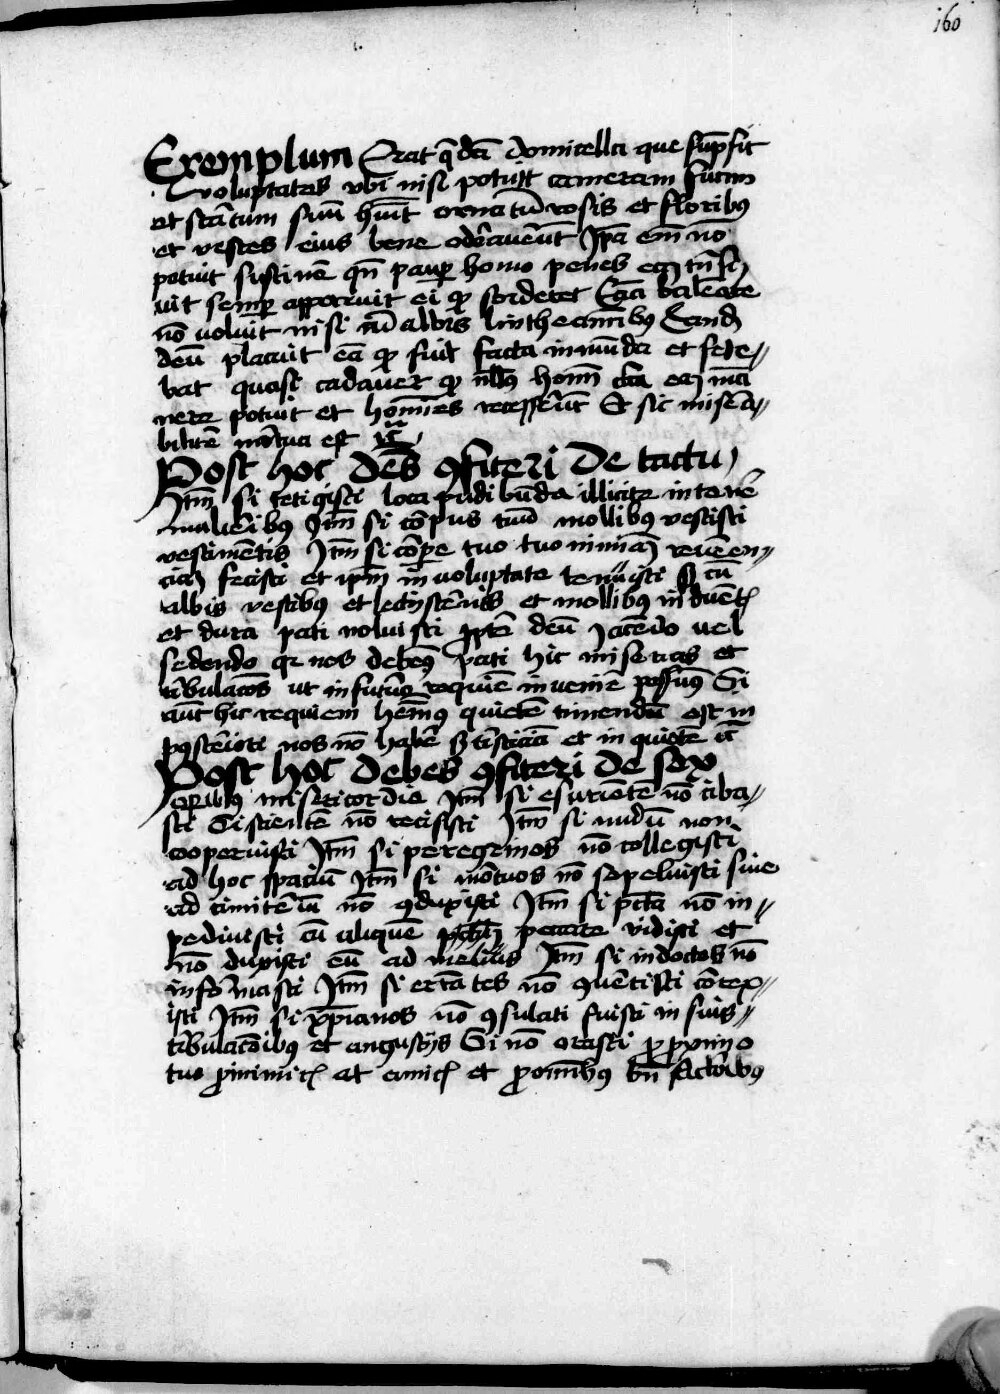 160
Exemplum Erat q̄dā domicella que sūpsit
voluptates vbi nisi potuit cameram suam
et stratum suū hūit ornatū rosis et floribus
et vestes eius bene odorauerūt Ipā em̄ nō
potuit sustinē qn̄ paup̄ homo penes eā
uit semp̄ apparuit ei q̄ sorderet balneare
nō voluit nisi cū albis lintheaminibus
deū placuit eā q̄ fuit facta inmūda et fete
bat quasi cadauer q̄ nullus hom̄
nere potuit et homīes recesserūt Et sic misera
bilitē mortua est
Post hoc debes ꝯfiteri De tactu
Itm̄ si tetigisti loca pudibūda illicite in te vel
mulieribus Itm̄ si corpus tuū mollibus vestisti
vestimētis Itm̄ si corpe tuo tuo nimiā reueren
ciā fecisti et ipm̄ in voluptate tenuisti cū
albis vestibus et lectisternijs et mollibus
et dura pati noluisti ꝓpter deū iacendo uel
sedendo qr nos debemus pati hic miserias et
tribulacōes ut in futuro requiē inuenire possimus Si
aūt hic requiem hēmus quietē timendū est in
posteriori nos nō habere tristiciā et in quiete
Post hoc debes ꝯfiteri de sex
operibus misericordie Itm̄ si esurientē nō ciba
sti Si scientē nō recisisti Itm̄ si nudū non
cooperuisti Itm̄ si peregrinos nō collegisti
ad hoc spaciū Itm̄ si mortuos nō sepeluisti siue
ad cimiteriū nō ꝯduxisti Itm̄ si pctā nō in
pediuisti cū aliquē peccare vidisti et
nō duxisti eū ad melius Itm̄ si indoctos nō
informasti Itm̄ si errātes nō ꝯuertisti correx
isti Itm̄ si xpianos nō ꝯsulati fuisti in suis
tribulacōibus et angustijs Si nō orasti ꝓ proximo
tuo ꝓ inimicis et amicis et ꝓ omnibus bn̄factoribus